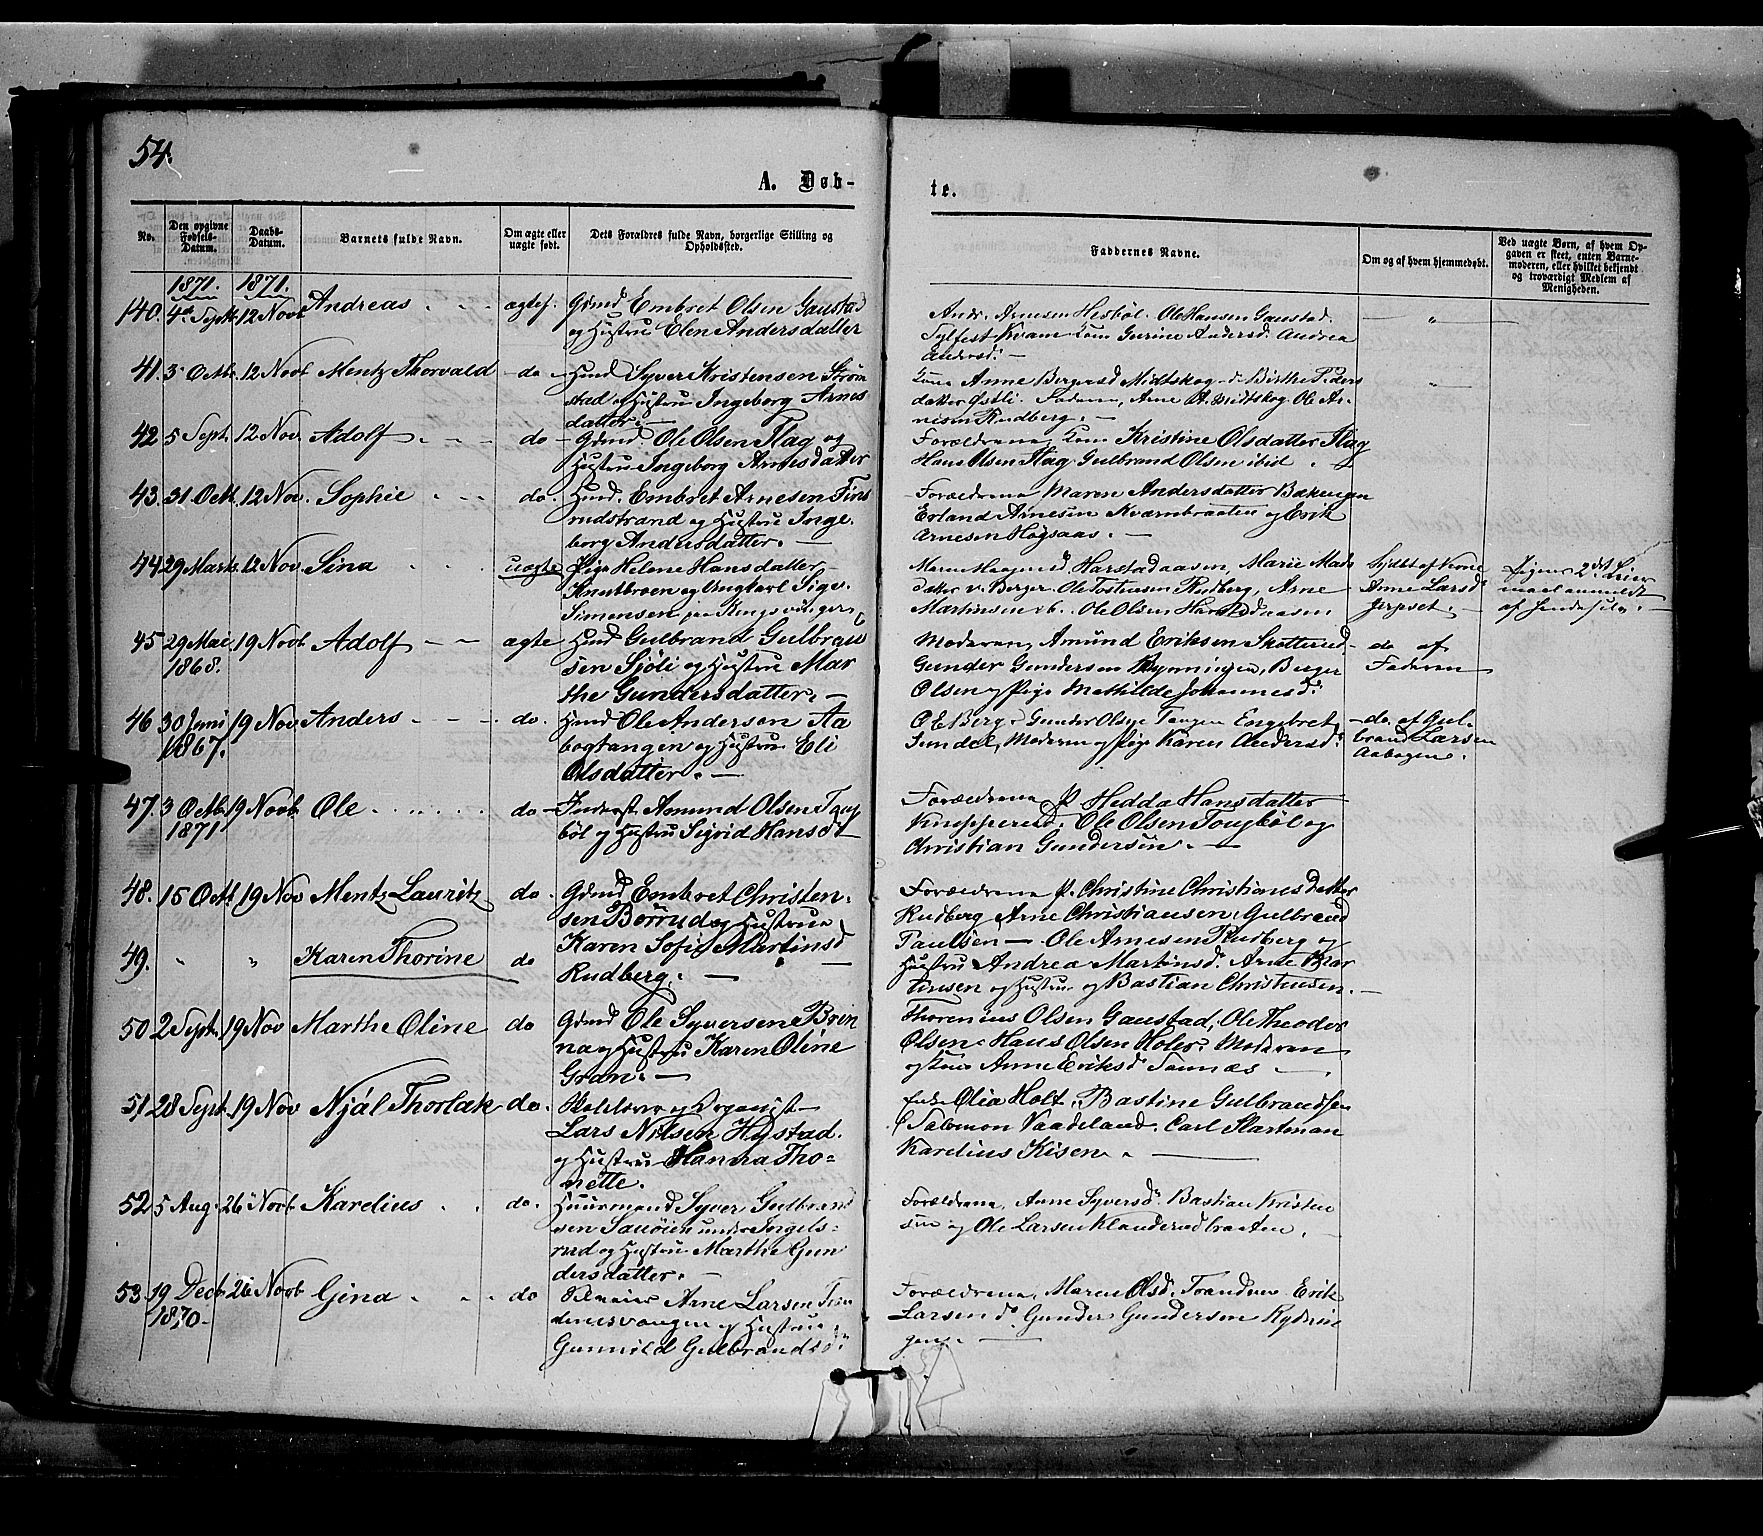 54.
A. Døb-
te.
No.
Den opgivne Fødsels-Datum.
Daabs-Datum.
Barnets fulde Navn.
Om ægte eller uægte født.
Dets Forældres fulde Navn, borgerlige Stilling og Opholdssted.
Faddernes Navne.
Om og af hvem hjemmedøbt.
Ved uægte Børn, af hvem Opgaven er skeet, enten Barnemoderen, eller hvilket bekjendt og troværdigt Medlem af Menigheden.
1871. 1871.
140. 4de Septb 12 Novb Andreas - - ægtef. Gbmd Embret Olsen Gaustad
og Hustru Elen Andersdatter
Andr. Arnesen Hesbøl. Ole Hansen Gaustad.
Sylfest Kvam Kone Gurine Andersd. Andrea
Andersd. —
41. 3 Octb. 12 Novb Mentz Thorvald - do - Husmd Syver Kristensen Strøm
stad og Hustru Ingeborg Arnes
datter. —
Kone Anne Bergersd Midtskog - d Birthe Peders
datter Østli. Faderen, Arne A. Midtskog. Ole Ar-
nesen Rudberg. —
42 5 Sept. 12 Nov. Adolf - - - do - Gbmd Ole Olsen Flag og
Hustru Ingeborg Arnesdatter
Forældrene Kone Kristine Olsdatter Flag
Hans Olsen Flag Gulbrand Olsen ibid.
43. 31 Octb. 12 Nov. Sophie - - - do. Husmd. Embret Arnesen Fins
rudstrand og Hustru Inge-
borg Andersdatter. —
Forældrene Maren Andersdatter Bækengen
Erland Arnesen Kværnbraaten og Erik
Arnesen Høgsaas. —
44 29 Marts 12 Nov. Sina - - - uægte Pige Helene Hansdatter
Knutbroen og Ungkarl Sige
Simensen paa Kongsvinger
Harstadaasen, Marie Mads
datter v. Berger. Ole Tostensen Rudberg, Arne
Martinsen ib. Ole Olsen Harstadaasen
Hjdbt af Kone
Anne Larsd
Jerpset.
Pigens 2det Leier
maal anmeldt
af hende selv. —
45 29 Mai 19 Novb Adolf - - ægte Husmd Gulbrand Gulbran
1868.
sen Sjøli og Hustru Mar
the Gundersdatter. —
Moderen, Amund Eriksen Skotterud
Gunder Gundersen Rynningen, Berger
Olsen og Pige Mathilde Johannesd.
- do af
Faderen
46 30 Juni 19 Nov Anders - - - do. Husmd Ole Andersen Aa
1867.
bogtangen og Hustru Eli
Olsdatter. —
O E Berg. Gunder Olsen Tangen Engebret
Sundel, Moderen og Pige Karen Andersd.
- do. af Gul-
brand Larsen
Aabogen.
47. 3 Octb 19 Novb Ole - - - do - Inderst Amund Olsen Toug
1871
bøl og Hustru Sigrid Hansdt
Forældrene P. Hedda Hansdatter
Kneppered. Ole Olsen Tougbøl og
Christian Gundersen. —
48. 15 Octb 19 Nov Mentz Lauritz do. Gbmd Embret Christen-
sen Børrud og Hustru
Karen Sofie Martinsd
Rudberg. —
Forældrene P. Christine Christiansdatter
Rudberg Arne Christiansen, Gulbrand
Paulsen —
49. " " Karen Thorine do
Ole Arnesen Rudberg og
Hustru Andrea Martinsd. Arne Mar
tinsen og Hustru og Bastian Christensen. —
50 2 Sept. 19 Nov Marthe Oline do Gbmd Ole Syversen Bren
na og Hustru Karen Oline
Gran. —
Thorenius Olsen Gaustad, Ole Theodor
Olsen. Hans Olsen Holer. Moderen
og Kone Anne Eriksd Sannæs —
51 28 Sept. 19 Nov Njál Thorlak do. Skolelærer og Organist
Lars Nilsen Hystad.
og Hustru Hanna Tho=
nette.
Olia Holt. Bastine Gulbrandsen
Salomon Vaadeland. Carl Hartman
Karelius Kisen. —
52 5 Aug. 26 Novb Karelius - - do. Huusmand Syver Gulbrand
sen Sanøien under Ingels-
rud og Hustru Marthe Gun
dersdatter.
Forældrene, Anne Syversd. Bastian Kristen
sen og Ole Larsen Klanderudbraaten.
53. 19 Decb 26 Novb Gina - - - do Arne Larsen
1870.
og Hustru
Gunnild Gulbrandsd.
Forældrene, Maren Olsd. Erik
Larsen do. Gunder Gundersen Rynnin
gen. —